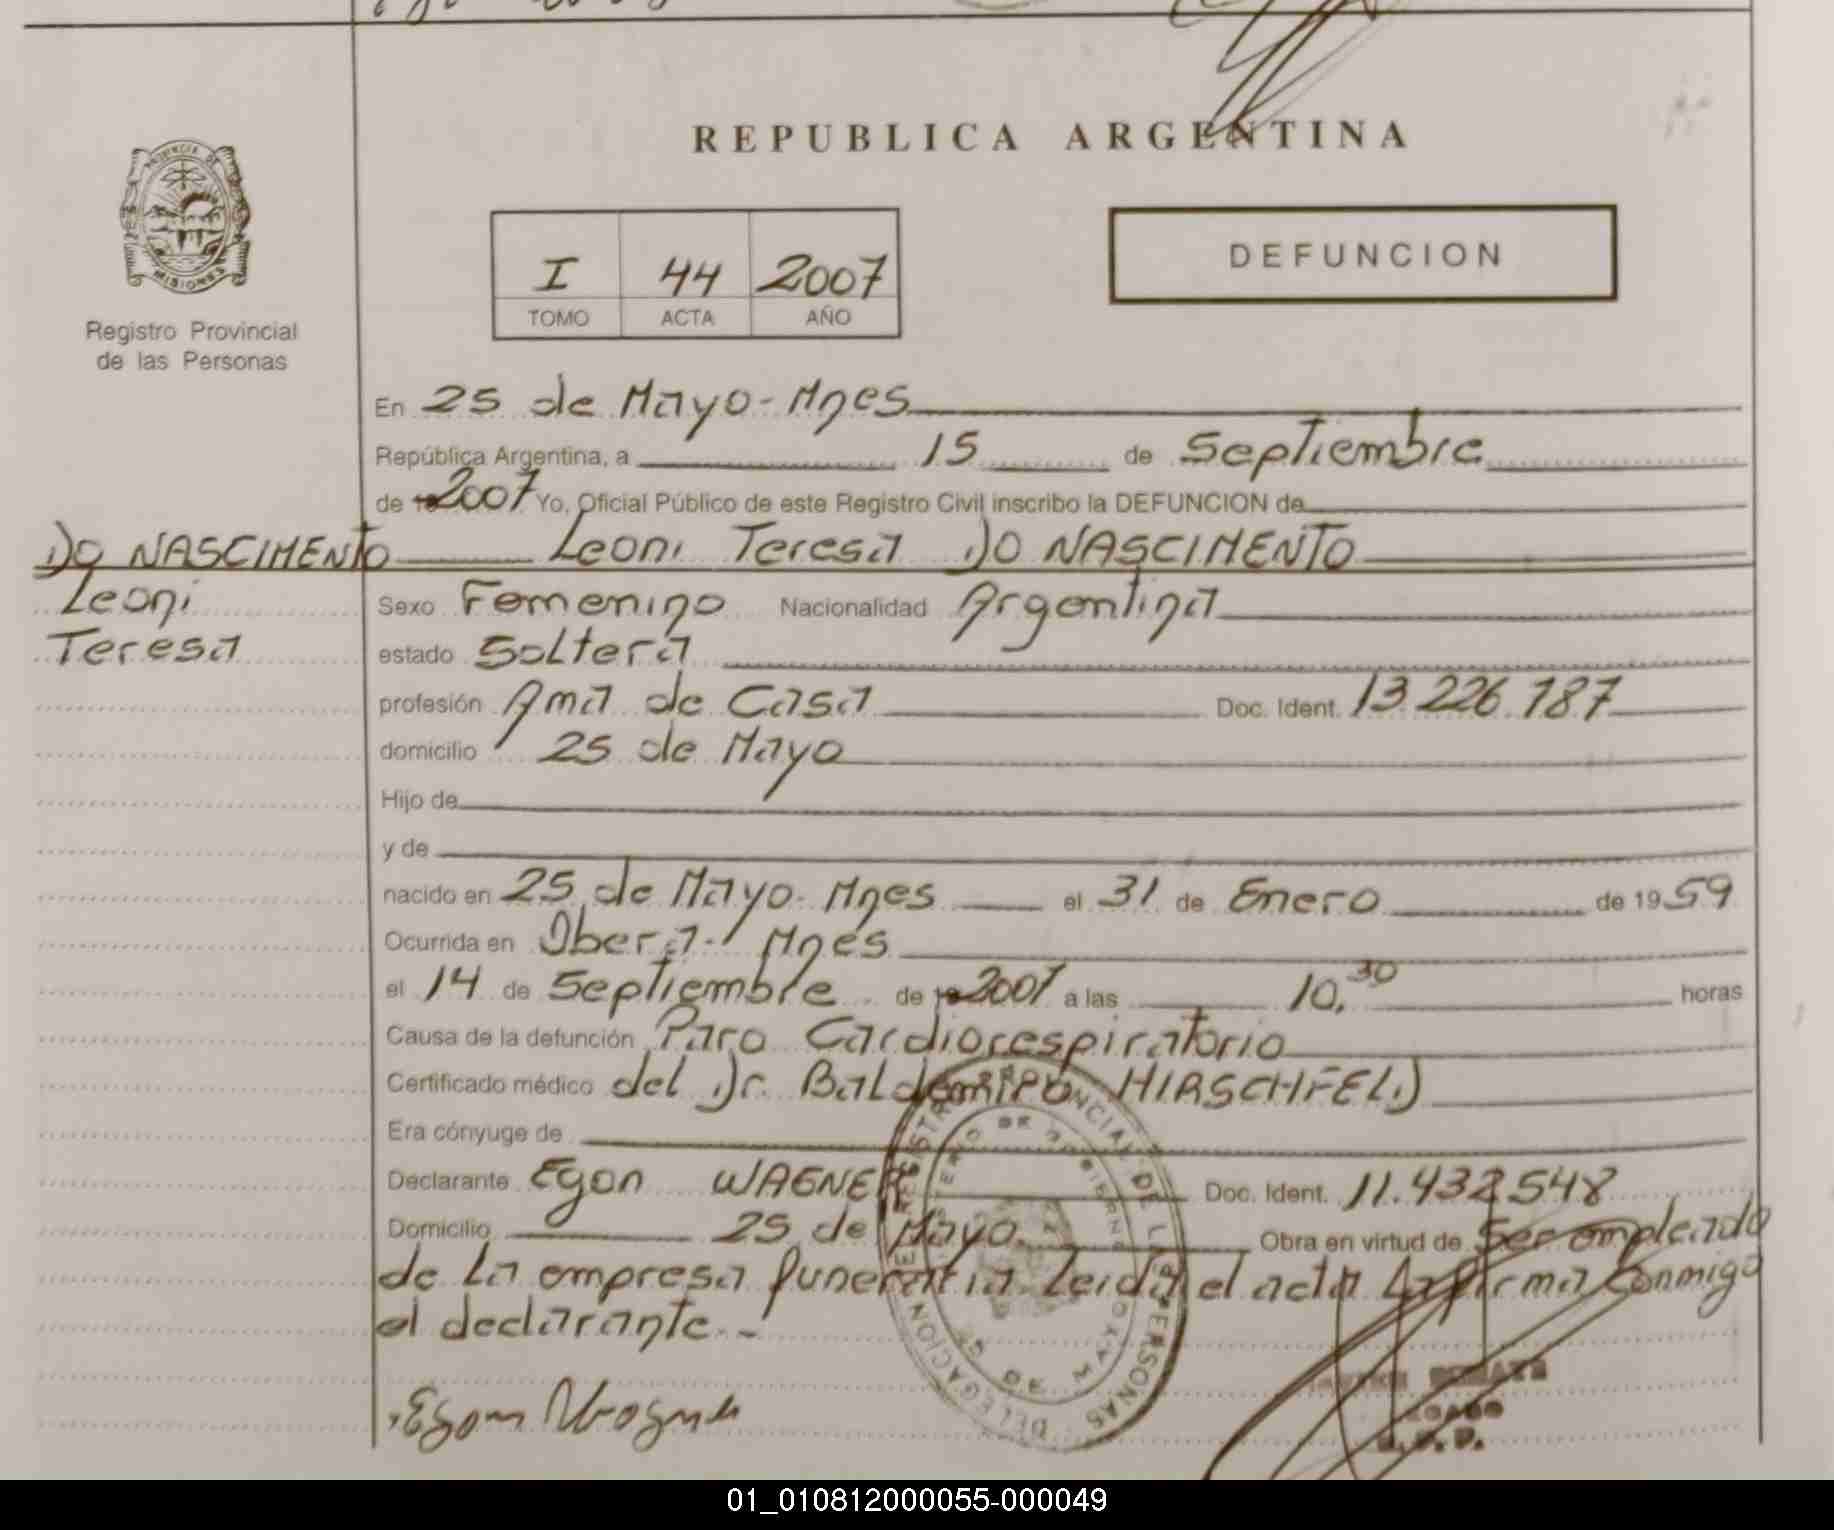 REPUBLICA ARGENTINA
PROVINCIA DE
MISIONES
Registro Provincial
de las Personas
I 44 2007
TOMO ACTA AÑO
DEFUNCION
En 25 de Mayo - Mnes
República Argentina, a 15 de Septiembre
de 19 2007 Yo, Oficial Público de este Registro Civil inscribo la DEFUNCION de
DO NASCIMENTO Leoni Teresa DO NASCIMENTO
Leoni
Teresa
Sexo Femenino Nacionalidad Argentina
estado Soltera
profesión Ama de Casa Doc. Ident. 13.226.787
domicilio 25 de Mayo
Hijo de
y de
nacido en 25 de Mayo - Mnes el 31 de Enero de 1959
Ocurrida en Oberá - Mnes
el 14 de Septiembre de 19 2007 a las 10.30 horas
Causa de la defunción Paro Cardiorespiratorio
Certificado médico del Dr. Baldomiro HIRSCHFELD
Era cónyuge de
Declarante Egon WAGNER Doc. Ident. 11.432.548
Domicilio 25 de Mayo Obra en virtud de Ser empleado
de la empresa funeraria Leida el acta La firma conmigo
el declarante.-
Egon Wagner
REGISTRO PROVINCIAL DE LAS PERSONAS
DELEGACION
MINISTERIO DE GOBIERNO
25 DE MAYO
01_010812000055-000049